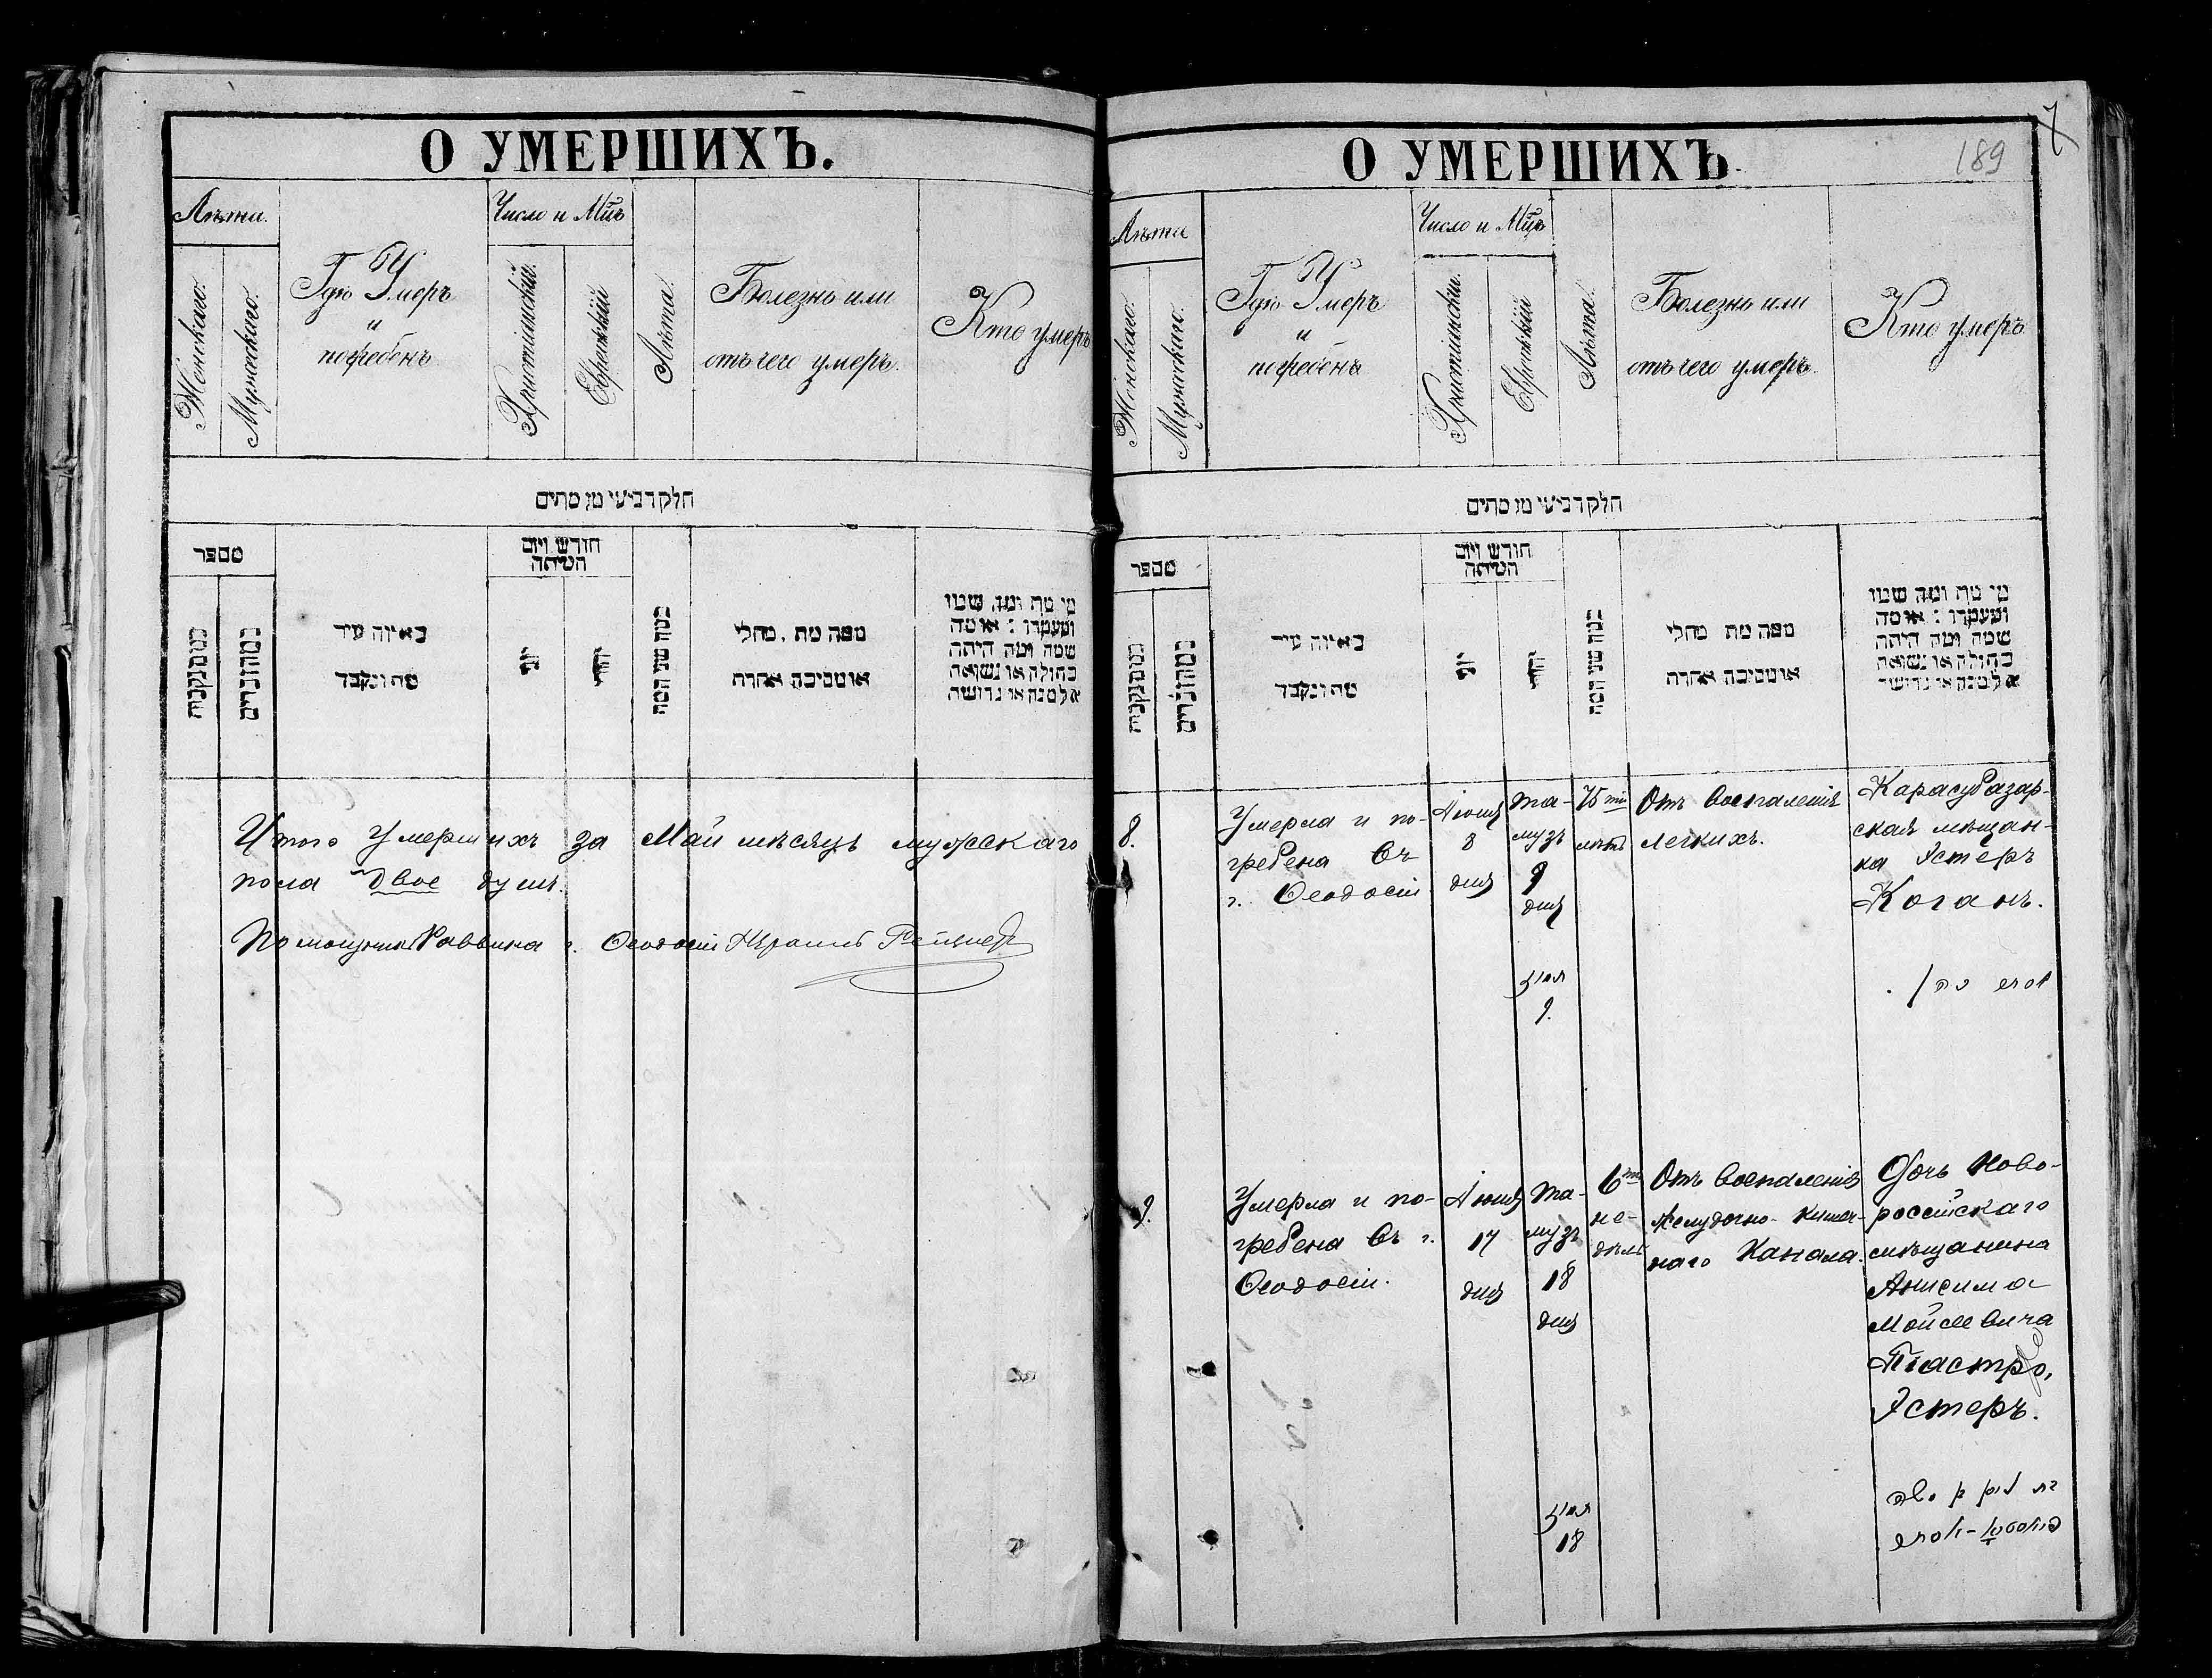 О УМЕРШИХЪ.
Лѣта.
Женскаго.
Мужескаго.
Гдѣ Умеръ
и
погребенъ
Число и Мцъ
Христіанскій.
Еврейскій
Лѣта.
Болезнь или
отъ чего умеръ.
Кто умеръ
חלק רביעי מן מתים
מספר
מהנקבות
מהזכרים
באיזה עיר
מת ונקבר
חודש ויום
המיתה
יוני
יהודי
כמה שני המת
מפה מת . מחלי
או מסיבה אחרת
מי מת ומה שמו
ומעמדו : או מה
שמה ומה היתה
בתולה או נשואה
אלמנה או גרושה
Итого Умершихъ за Май мѣсяцъ мужескаго
пола двое душъ.
Помощникъ Раввина г. Ѳеодосіи
О УМЕРШИХЪ.
189
7
Лѣта
Женскаго.
Мужескаго.
Гдѣ Умеръ
и
погребенъ
Число и Мцъ
Христіанскій.
Еврейскій
Лѣта.
Болезнь или
отъ чего умеръ.
Кто умеръ
חלק רביעי מן מתים
מספר
מהנקבות
מהזכרים
באיזה עיר
מת ונקבר
חודש ויום
המיתה
יוני
יהודי
כמה שני המת
מפה מת מחלי
או מסיבה אחרת
מי מת ומה שמו
ומעמדו : או מה
שמה ומה היתה
בתולה או נשואה
אלמנה או גרושה
8.
Умерла и по-
гребена въ
г. Ѳеодосіи
Іюня
8
дня
Та-
музъ
9
дня
תמוז
9.
75 ти
лѣтъ
Отъ воспаленія
легкихъ.
Карасубазар-
ская мѣщан-
ка Эстеръ
Коганъ.
אסתר כהן.
9.
Умерла и по-
гребена въ г.
Ѳеодосіи.
Іюня
17
дня
Та-
музъ
18
дня
תמוז
18
6 ти
не-
дѣль
Отъ воспаленія
желудочно-кишеч-
наго канала.
Дочь Ново-
россійскаго
мѣщанина
Анисима
Мойсеевича
Піастро,
Эстеръ.
אסתר